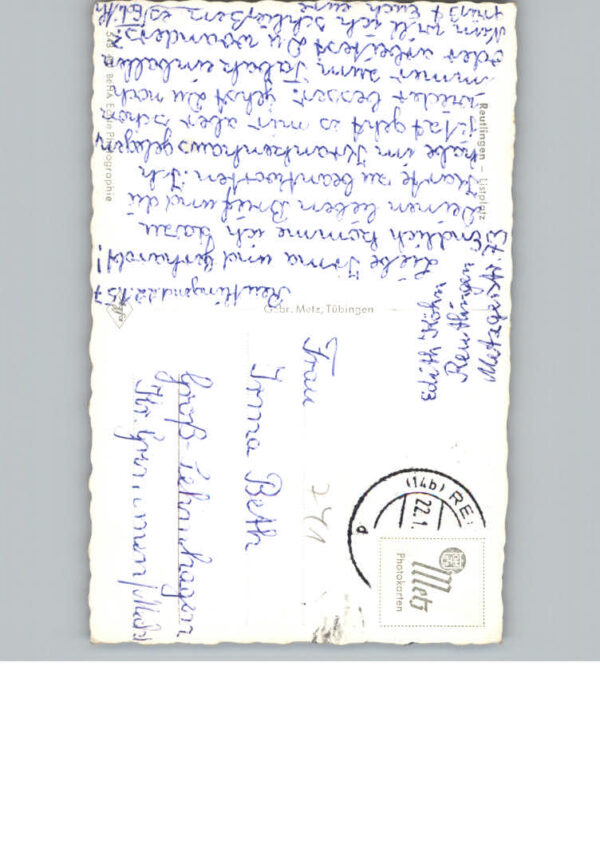 Reutlingen d. 22.1.57
Liebe Irma und Gerhardt!
Endlich komme ich dazu
deinen lieben Brief und die
Karte zu beantworten. Ich
habe im Krankenhaus gelegen
jetzt geht es mir aber schon
wieder besser. Gehst du noch
immer zum Tabak einballen
oder arbeitest Du woanders?
Nun will ich schließen es
grüßt Euch eure
Reutlingen
Metzgerstr. 73
Reutlingen – Listplatz
BEHA Echte Photographie
Gebr. Metz, Tübingen
Agfa
Frau
Irma Beth
Groß-
Kr. Grimmen/
241
(14b) RE
22.1.
d
Metz
Photokarten